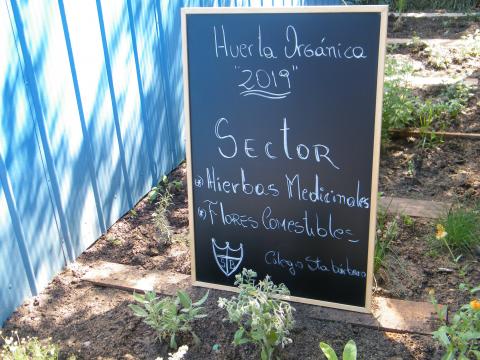 Huerta Orgánica
"2019"
Sector
* Hierbas Medicinales
* Flores Comestibles
C S B
Colegio Sta barbara